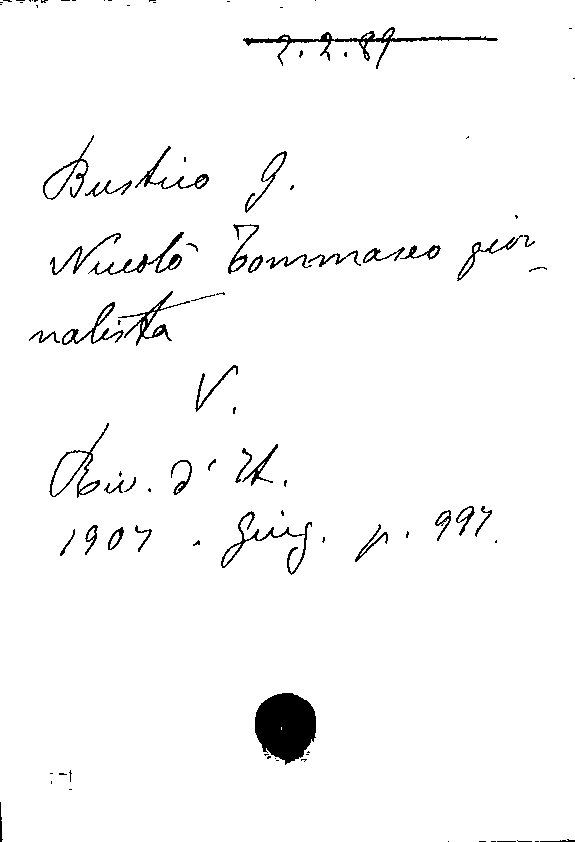 2.2.89
Bustico G.
Niccolò Tommaseo gior-
nalista
V.
Riv. d'It.
1907 . Giug. p. 997.